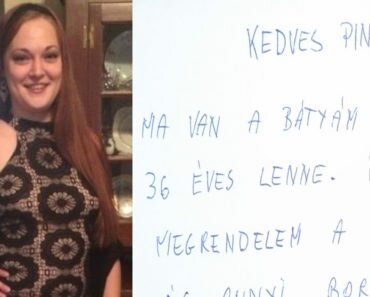 KEDVES PIN
MA VAN A BÁTYÁM
36 ÉVES LENNE.
MEGRENDELEM A
ÉS ANNYI BOR